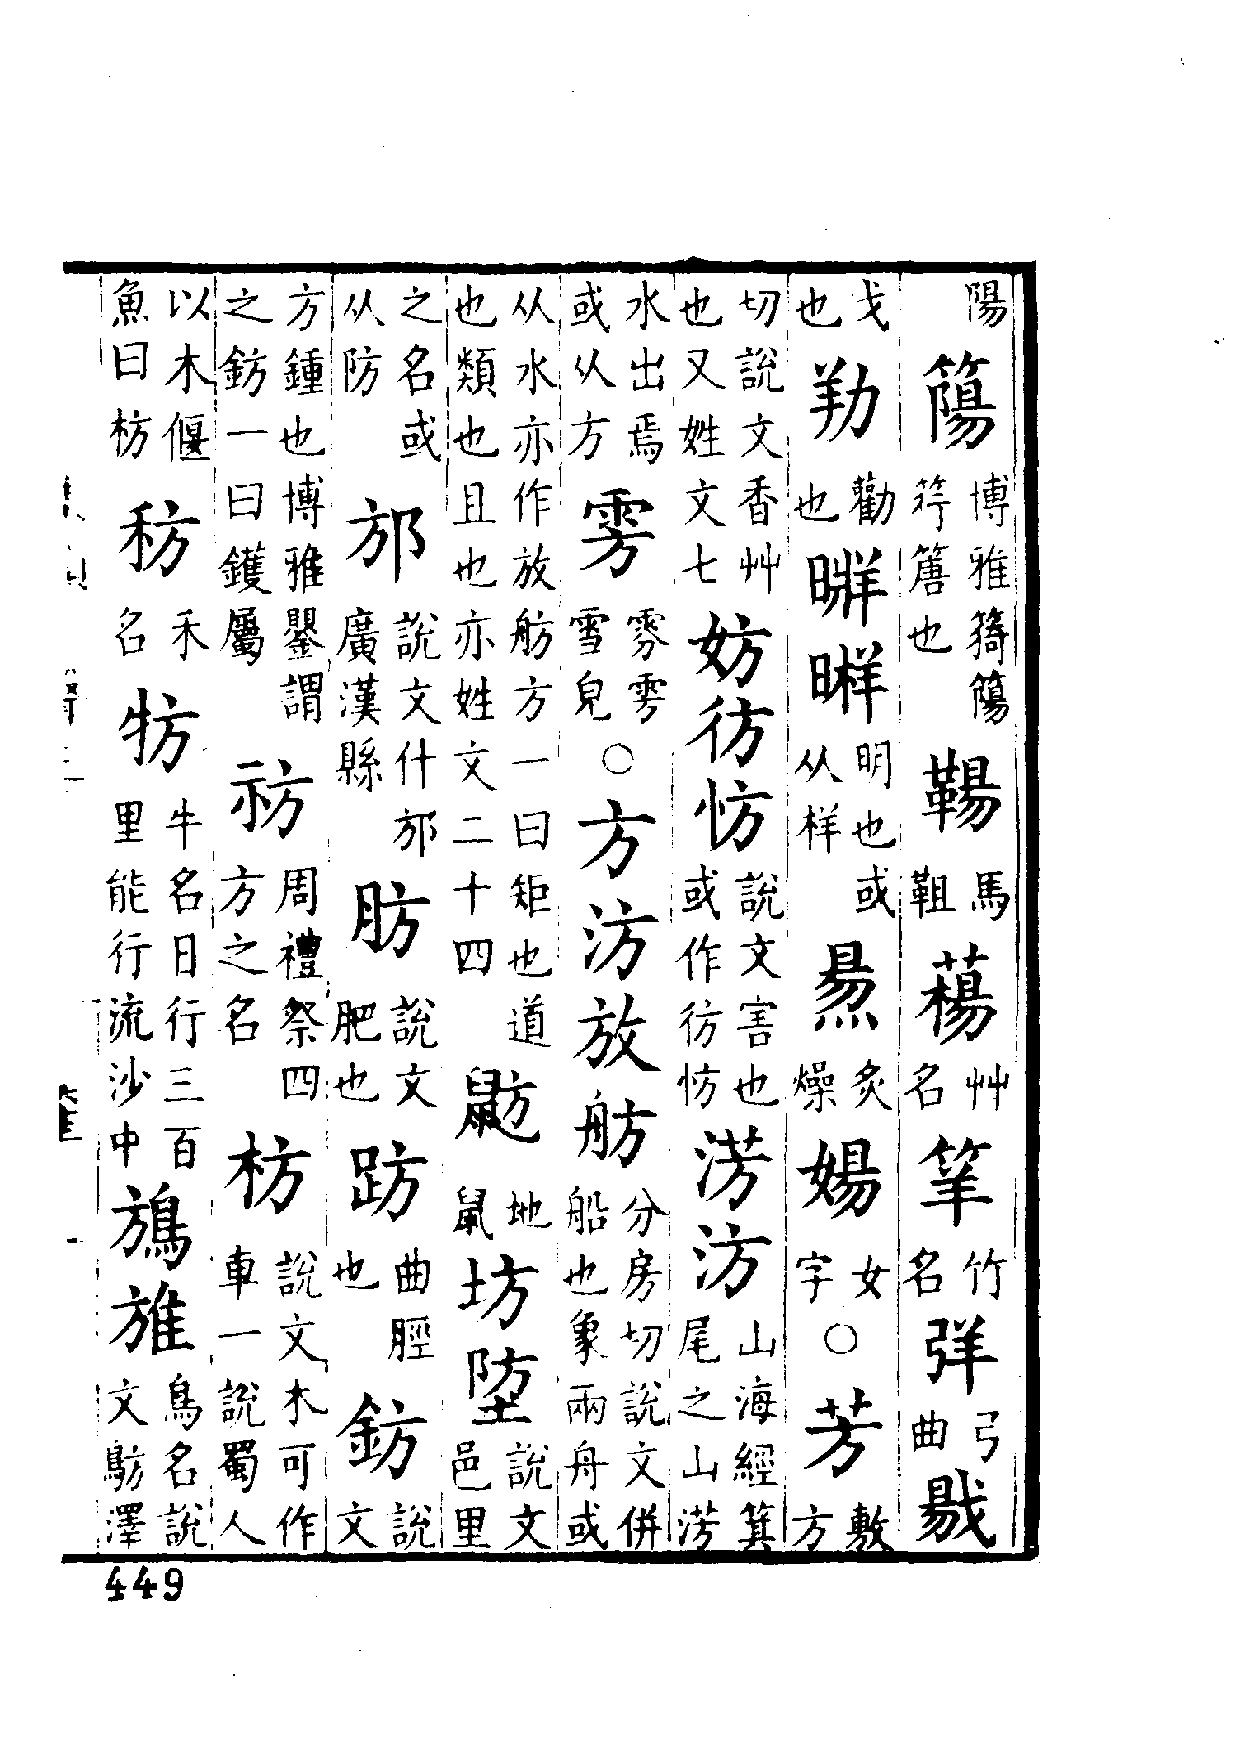 陽䈰博雅䈎䈰笄簷也䵮馬靼楊艸名筀竹名弲弓曲敭
戈也勜勸也㬕𣇵明也或从样煬炙燥婸女字○芳敷方
切說文香艸也又姓文七妨彷㤃說文害也或作彷㤃淓汸山海經箕尾之山淓
水出焉或从方雱雰雱雪皃○方汸放舫分房切說文併船也象兩舟或
从水亦作放舫方一曰矩也道也類也且也亦姓文二十四䲱地鼠坊埅說文邑里
之名或从防邡說文什邡廣漢縣肪說文肥也趽曲脛也鈁說文
方鍾也博雅鑍謂之鈁一曰鑊屬祊周禮祭四方之名枋說文木可作車一說蜀人
以木偃魚曰枋秜禾名牥牛名日行三百里能行流沙中鴋䲱鳥名說文鴋澤
449